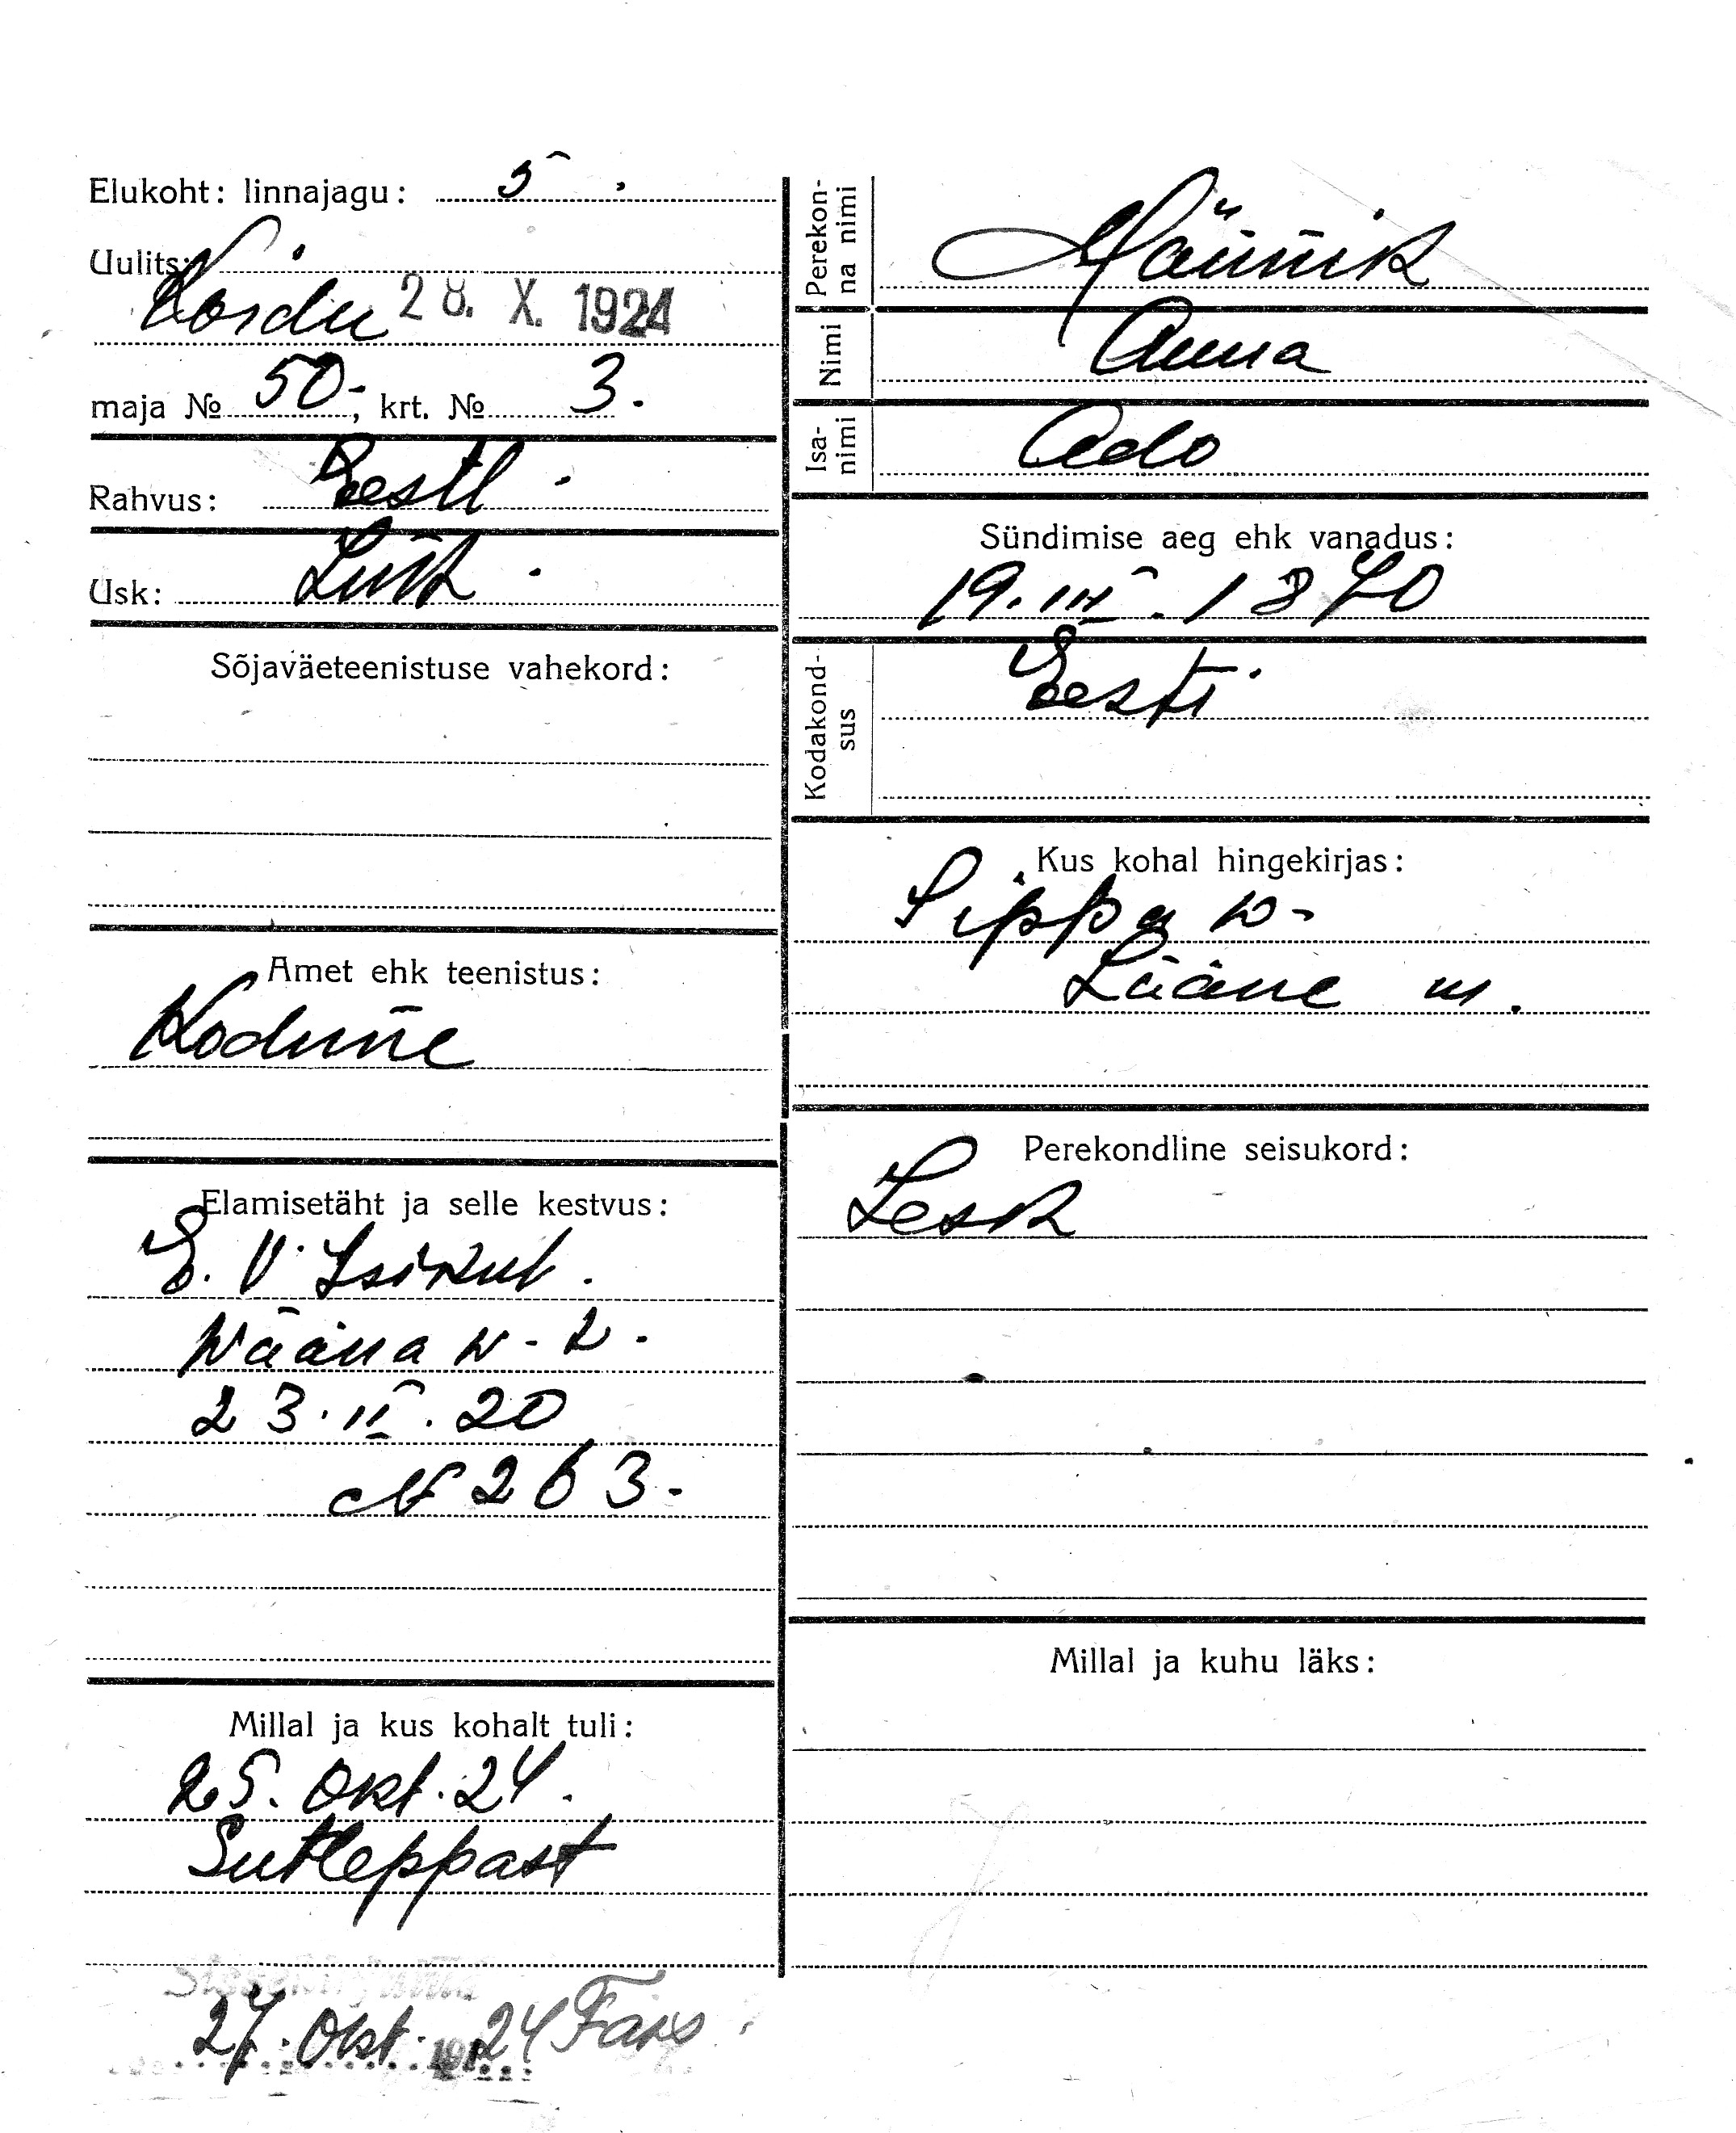 Elukoht: linnajagu: 5.
Uulits:
Koidu 28. X. 1924
maja № 50-, krt. № 3.
Rahvus: Eesti.
Usk: Lutk.
Sõjaväeteenistuse vahekord:
Amet ehk teenistus:
Kodune
Elamisetäht ja selle kestvus:
E. V. Isikut.
Wääna w-l.
23. II. 20
№ 263.
Millal ja kus kohalt tuli:
25. Okt. 24.
Sutleppast
27. Okt. 24
Perekonna nimi
Männik
Nimi
Anna
Isanimi
Ado
Sündimise aeg ehk vanadus:
19. III. 1870
Kodakondsus
Eesti
Kus kohal hingekirjas:
Sippa w-
Lääne m.
Perekondline seisukord:
Lesk
Millal ja kuhu läks: